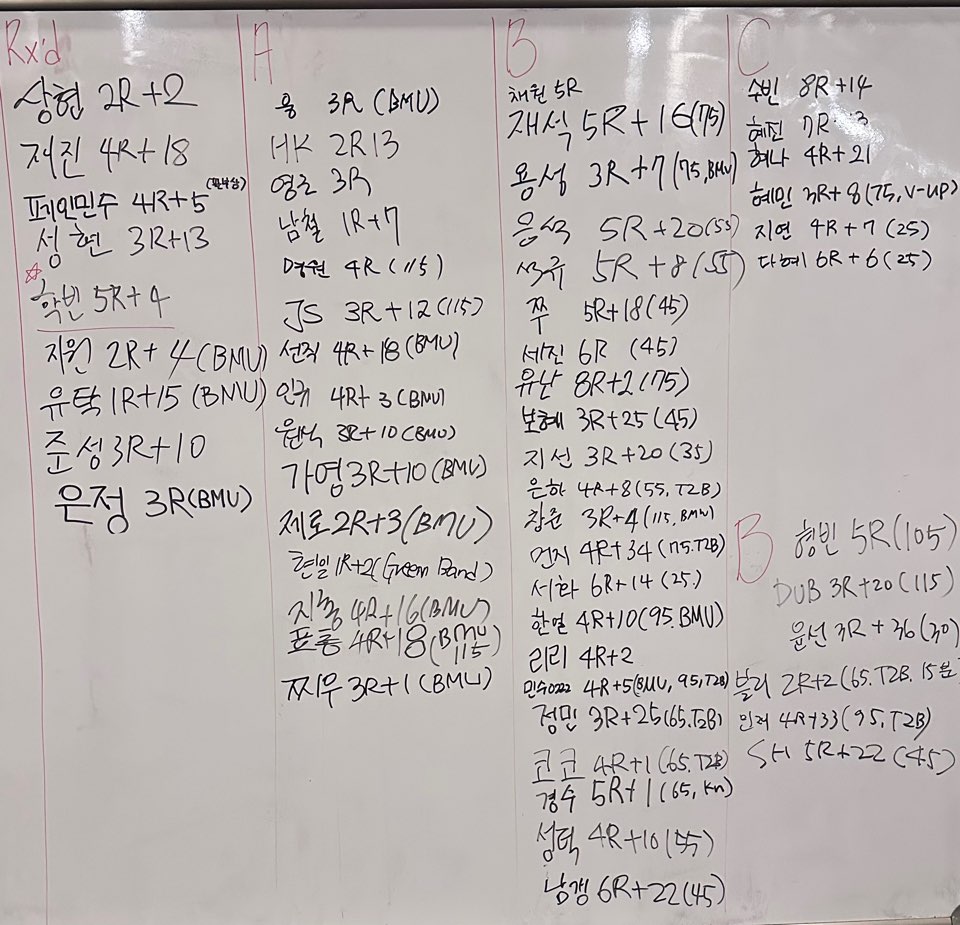 Rx'd
상현 2R+2
저진 4R+18
페인민수 4R+5
성현 3R+13
☆
학빈 5R+4
지원 2R+4 (BMU)
유탁 1R+15 (BMU)
준성 3R+10
은정 3R (BMU)
A
용 3R (BMU)
HK 2R13
영호 3R
남철 1R+7
명원 4R (115)
JS 3R+12 (115)
선직 4R+18 (BMU)
인규 4R+3 (BMU)
원식 3R+10 (BMU)
가영 3R+10 (BMU)
제로 2R+3 (BMU)
현일 1R+2 (Green Band)
지홍 4R+16 (BMU)
표홍 4R+18 (BMU 115)
찌우 3R+1 (BMU)
B
채원 5R
재석 5R+16 (75)
용성 3R+7 (75, BMU)
은석 5R+20 (55)
석규 5R+8 (55)
쭈 5R+18 (45)
세진 6R (45)
유난 8R+2 (75)
보혜 3R+25 (45)
지선 3R+20 (35)
은하 4R+8 (55, T2B)
창준 3R+4 (115, BMU)
먼지 4R+34 (75. T2B)
서화 6R+14 (25.)
한열 4R+10 (95. BMU)
리리 4R+2
민수0222 4R+5 (BMU, 95, T2B)
정민 3R+25 (65. T2B)
코코 4R+1 (65. T2B)
경수 5R+1 (65, Kn)
성턱 4R+10 (55)
남갱 6R+22 (45)
C
수빈 8R+14
혜진 7R 3
혜나 4R+21
혜민 3R+8 (75, V-UP)
지연 4R+7 (25)
다혜 6R+6 (25)
B
형빈 5R (105)
DUB 3R+20 (115)
윤선 3R+36 (30)
볼리 2R+2 (65. T2B. 15분
민저 4R+33 (95, T2B)
SH 5R+22 (45)